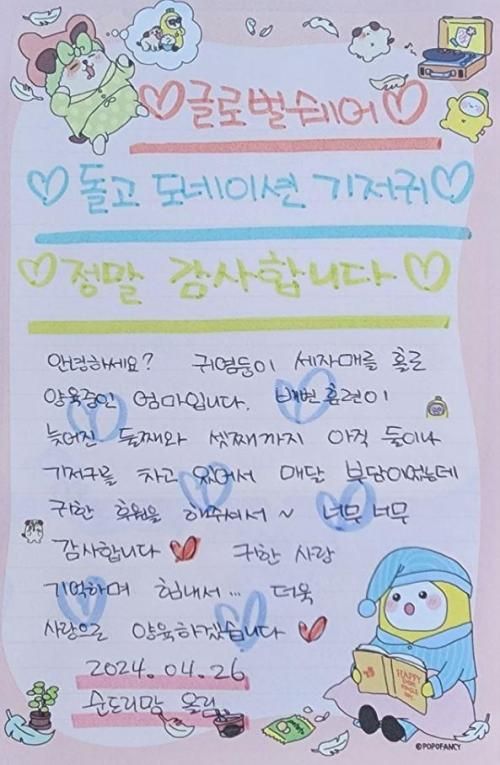 ♡글로벌쉐어♡
♡돌고 도네이션 기저귀♡
♡정말 감사합니다♡
안녕하세요? 귀염둥이 세자매를 홀로
양육중인 엄마입니다. 배변훈련이
늦어진 둘째와 셋째까지 아직 둘이나
기저귀를 차고 있어서 매달 부담이었는데
귀한 후원을 해주셔서 ~ 너무 너무
감사합니다 ♥ 귀한 사랑
기억하며 힘내서... 더욱
사랑으로 양육하겠습니다 ♥
2024.04.26
순도리맘 올림
HAPPY
©POPOFANCY